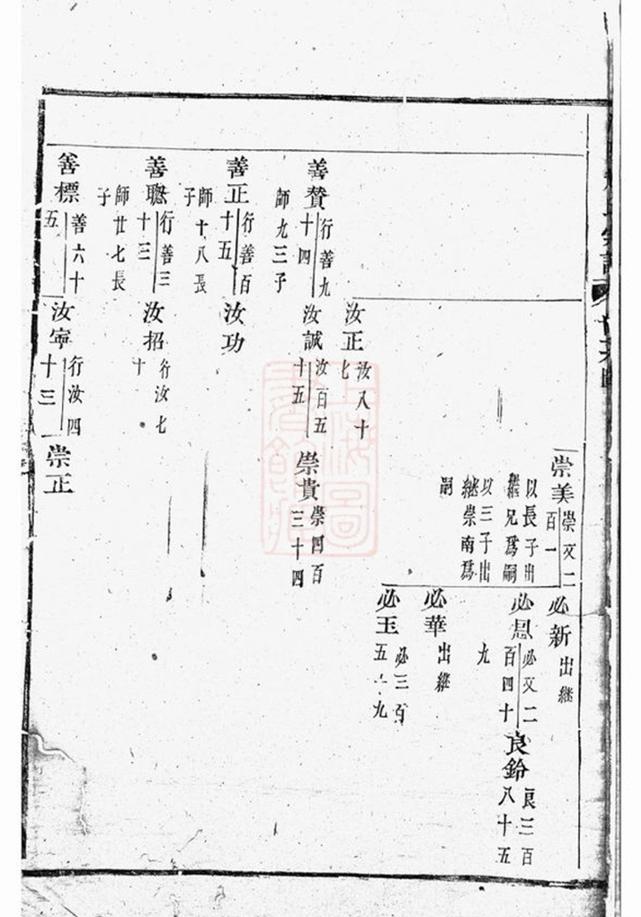 崇美 崇文二百一
以長子出繼兄爲嗣
以三子出繼崇南爲嗣
必新 出繼
必恩 必文二百四十九
良鈴 良三百八十五
必華 出繼
必玉 必三百五十九
汝正 汝八十七
善賛 行善九十四
師九三子
汝誠 汝百五十五
崇貴 崇四百三十四
善正 行善百十五
師十八長子
汝功
善聰 行善三十三
師廿七長子
汝招 行汝七十
善標 善六十五
汝寧 行汝四十三
崇正